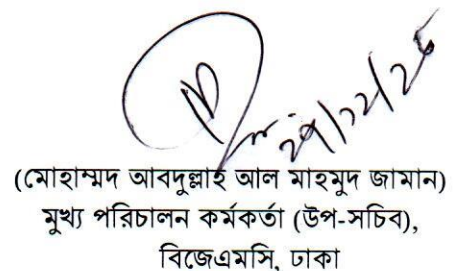 ২৭/১২/২৫
(মোহাম্মদ আবদুল্লাহ আল মাহমুদ জামান)
মুখ্য পরিচালন কর্মকর্তা (উপ-সচিব),
বিজেএমসি, ঢাকা